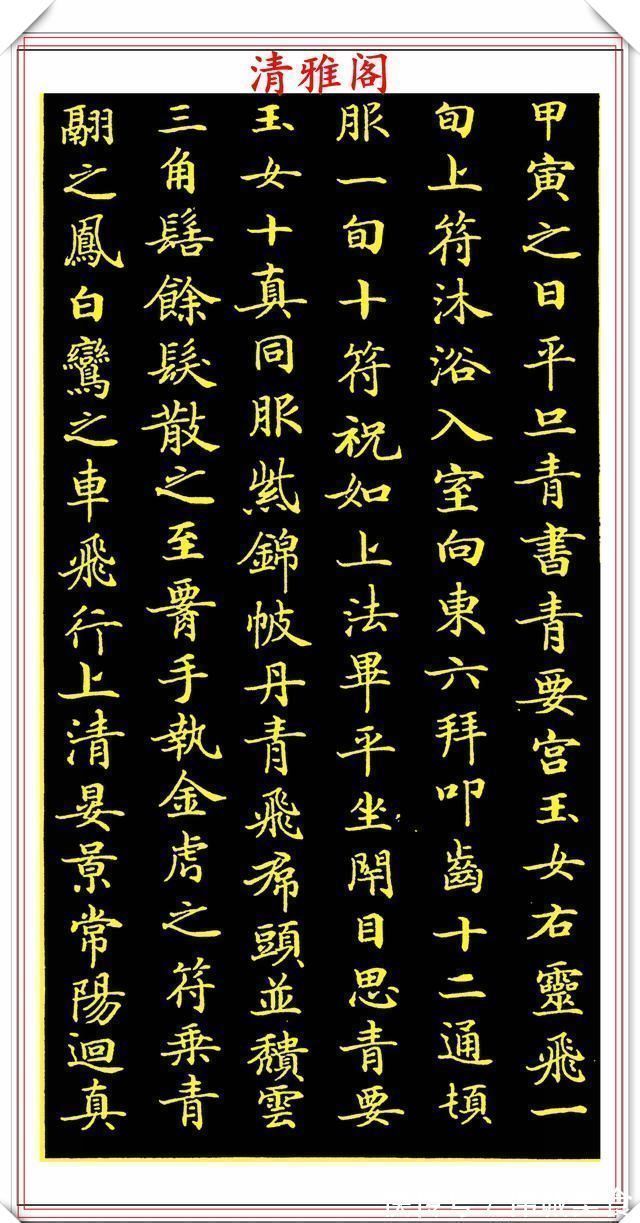 清雅阁
甲寅之日平旦青書青要宮玉女右靈飛一
旬上符沐浴入室向東六拜叩齒十二通頓
服一旬十符祝如上法畢平坐閉目思青要
玉女十真同服紫錦帔丹青飛帬頭並頹雲
三角髻餘髮散之至署手執金虎之符乘青
翮之鳳白鸞之車飛行上清晏景常陽迴真